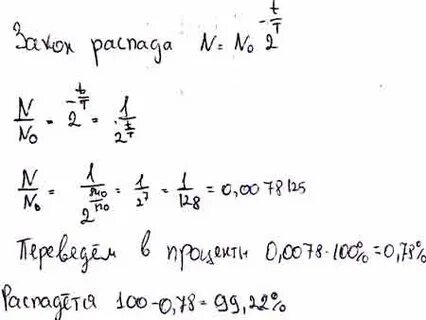 Закон распада N = N₀ 2^(-t/T)
N/N₀ = 2^(-t/T) = 1/2^(t/T)
N/N₀ = 1/2^(210/30) = 1/2⁷ = 1/128 = 0,0078125
Переведём в проценты 0,0078·100% = 0,78%
Распадётся 100-0,78 = 99,22%